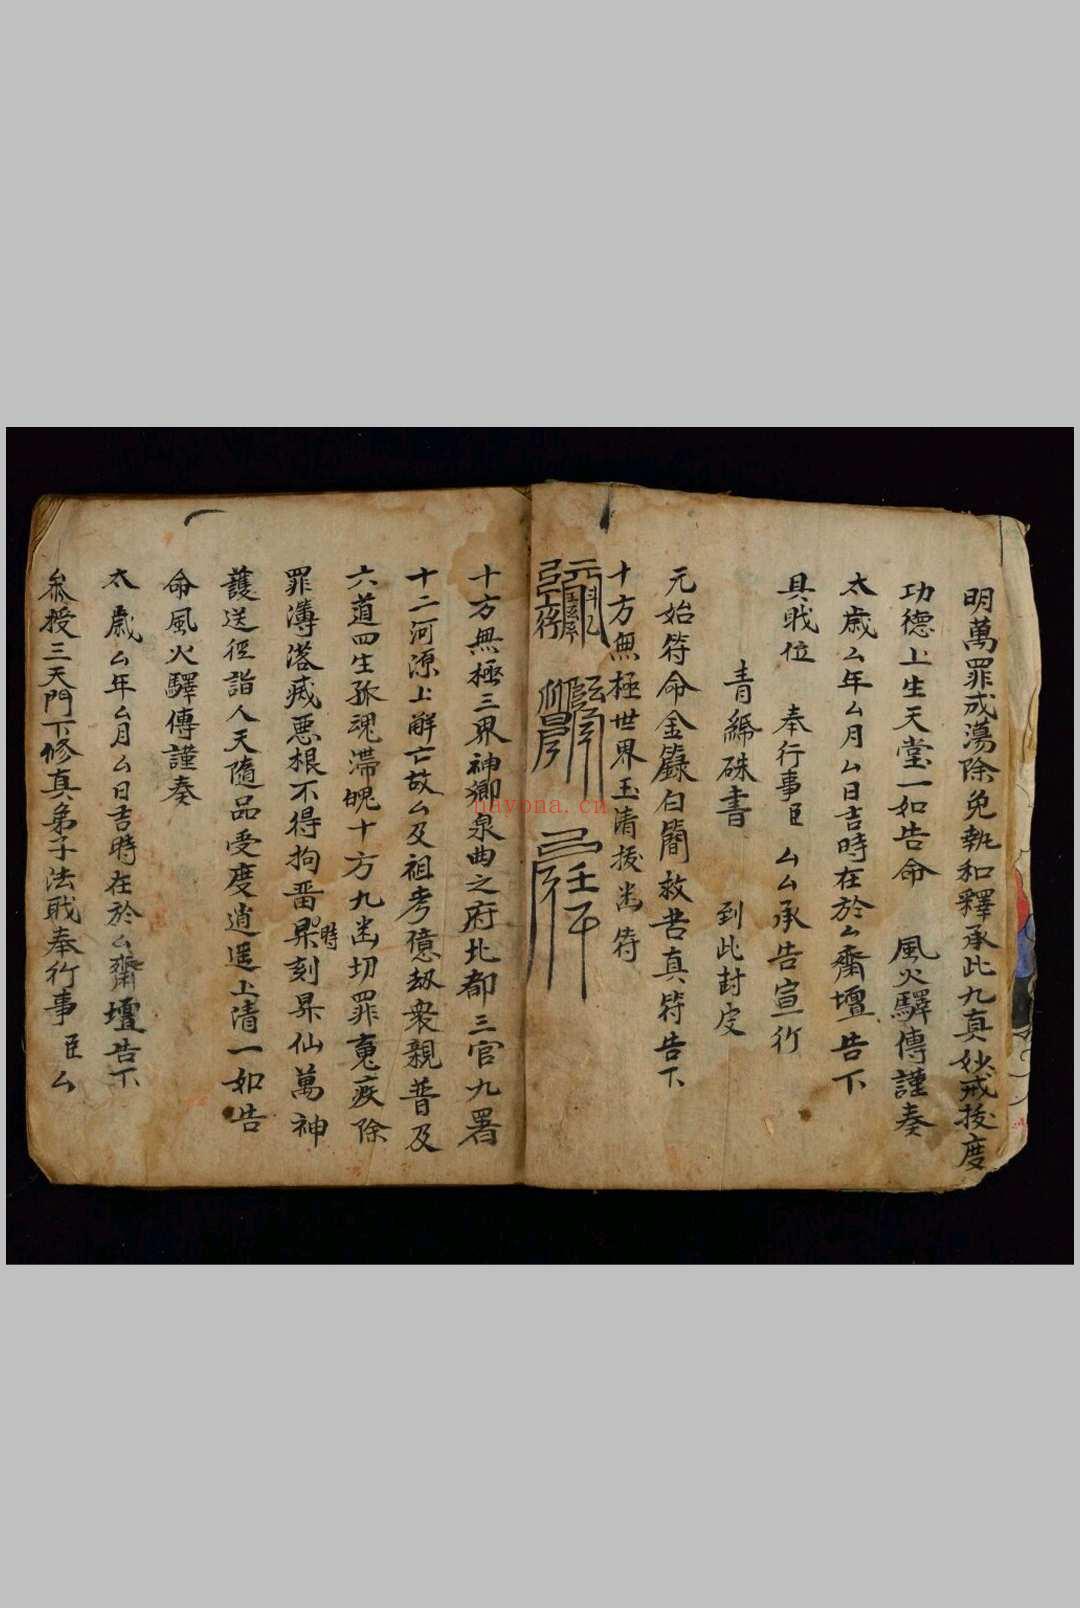 明萬罪咸蕩除免執和釋承此九真妙戒拔度
功德上生天堂一如告命 風火驛傳謹奏
太歲厶年厶月厶日吉時在於厶齋壇告下
具戝位 奉行事臣 厶厶承告宣行
青縑硃書 到此封皮
元始符命金籙白簡救苦真符告下
十方無極世界玉清拔幽符
十方無極三界神鄉泉曲之府北都三官九署
十二河源上解亡故厶及祖考億劫衆親普及
六道四生孤魂滯魄十方九幽切罪寃疾除
罪簿落滅惡根不得拘畱時刻昇仙萬神
護送徑詣人天隨品受度逍遥上清一如告
命風火驛傳謹奏
太歲厶年厶月厶日吉時在於厶齋壇告下
叅授三天門下修真弟子法戝奉行事臣厶
nayona.cn